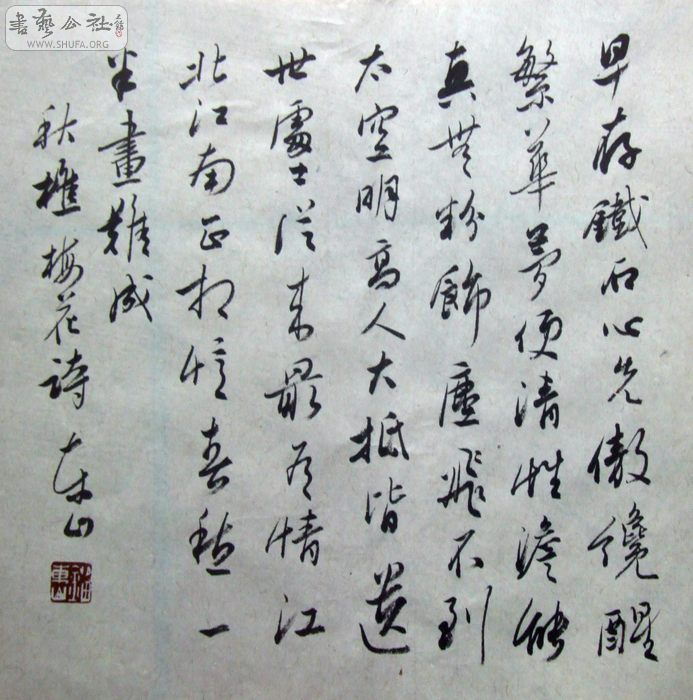 早存鐵石心先傲纔醒
繁華夢便清性澹能
真無粉飾塵飛不到
太空明高人大抵皆遺
世處士從來最有情江
北江南正相憶春愁一
半畫難成
秋樵梅花詩 東山
書藝公社
WWW.SHUFA.ORG